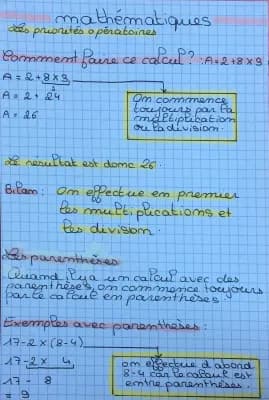 mathématiques
Les priorités opératoires
Comment faire ce calcul ? : A=2+8×3
A = 2+8×3
A = 2+ 24
A = 26
On commence
toujours par la
multiplication
ou la division.
Le resultat est donc 26.
Bilan : On effectue en premier
les multiplications et
les division.
Les parenthèses
Quand il y a un calcul avec des
parenthèses, on commence toujours
par le calcul en parenthèses.
Exemples avec parenthèses :
17-2×(8-4)
17-2× 4
17- 8
= 9
on effectue d'abord
8-4 car le calcul est
entre parenthèses.